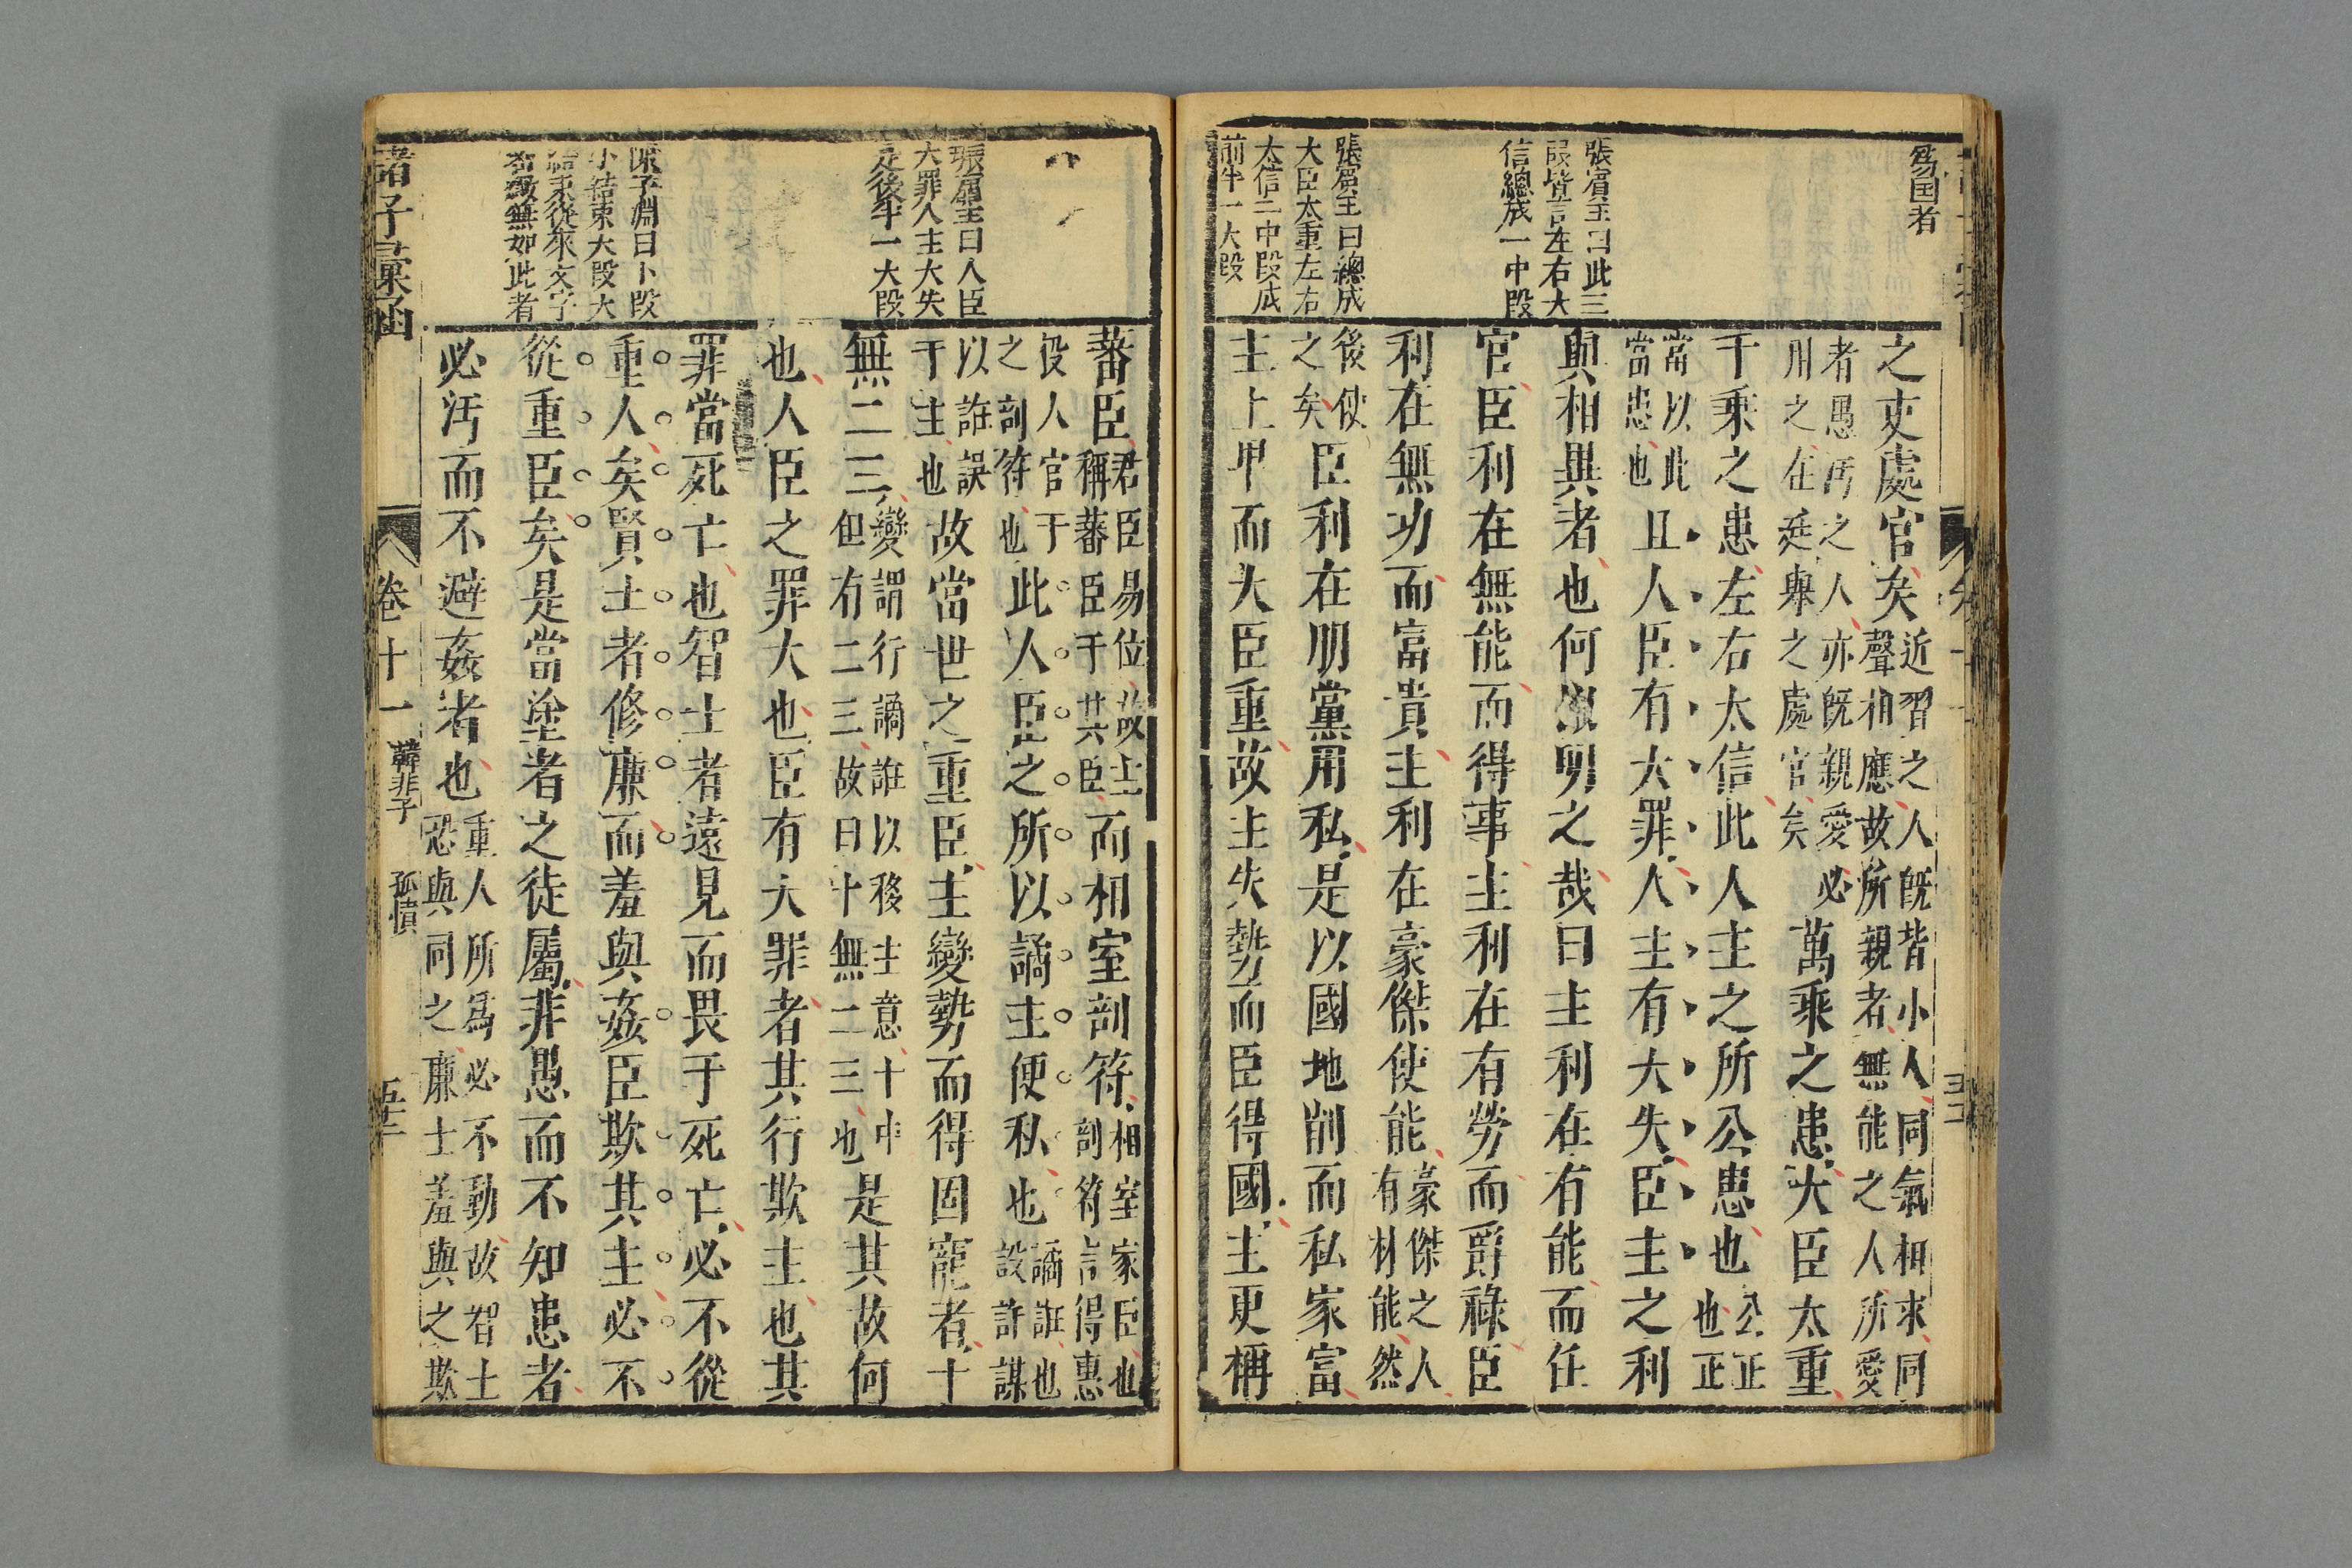 爲国者
張賓王曰此三
段皆言左右大
信總成一中段
張賓王曰總成
大臣太重左右
太信二中段成
前半一大段
之吏處官矣近習之人旣皆小人同氣相求同
聲相應故所親者無能之人所愛
者愚汚之人亦旣親愛必
用之在廷與之處官矣萬乘之患大臣太重
千乘之患左右太信此人主之所公患也公正
也正
當以此
當患也且人臣有大罪人主有大失臣主之利
與相異者也何以明之哉曰主利在有能而任
官臣利在無能而得事主利在有勞而爵祿臣
利在無功而富貴主利在豪傑使能豪傑之人
有材能然
後使
之矣臣利在朋黨用私是以國地削而私家富
主上卑而大臣重故主失勢而臣得國主更稱
張賓王曰人臣
大罪人主大失
是後半一大段
陳子淵曰卜段
小結束大段大
結束從來文字
嚴無如此者
蕃臣君臣易位故主
稱蕃臣于其臣而相室剖符相室家臣也
剖符言得惠
役人官于
之剖符也此人臣之所以譎主便私也譎誑也
設詐謀
以誑誤
于主也故當世之重臣主變勢而得固寵者十
無二三變謂行譎誑以移主意十中
但有二三故曰十無二三也是其故何
也人臣之罪大也臣有大罪者其行欺主也其
罪當死亡也智士者遠見而畏于死亡必不從
重人矣賢士者修廉而羞與姦臣欺其主必不
從重臣矣是當塗者之徒屬非愚而不知患者
必汚而不避姦者也重人所爲必不動故智士
恐與同之廉士羞與之欺
諸子彙函
卷十一
韓非子
孤憤
五十二